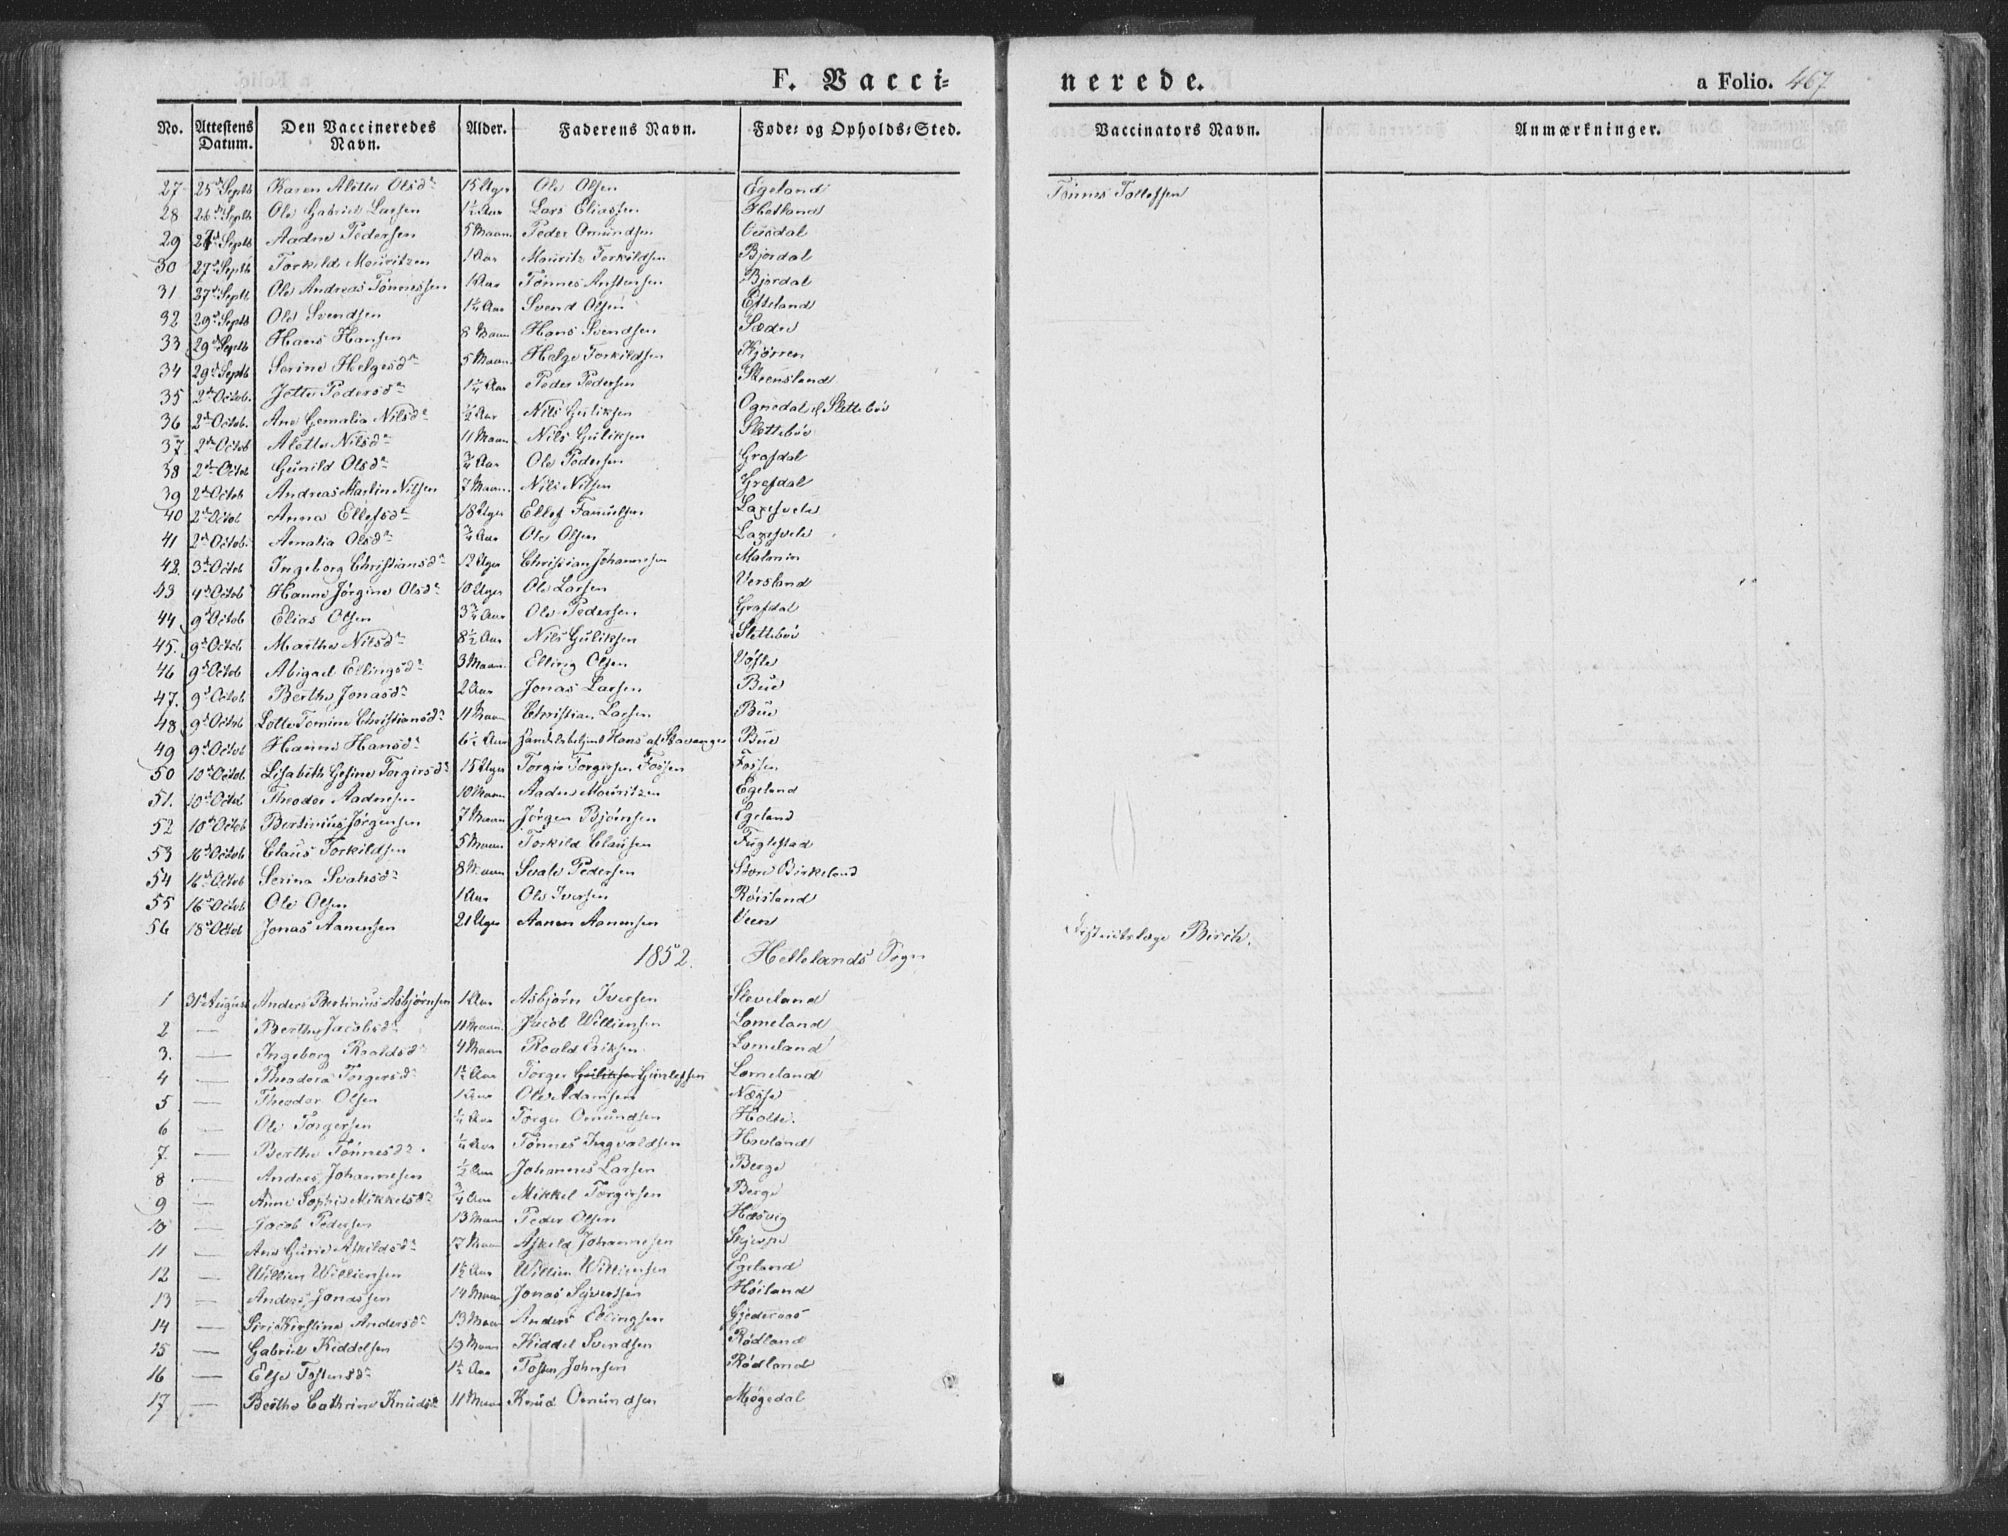 F. Vacci=
nerede.
a Folio. 467
No. Attestens Datum. Den Vaccineredes Navn. Alder. Faderens Navn. Føde= og Opholds=Sted. Vaccinators Navn. Anmærkninger.
27 25de Septb Karen Alethe Olsdr 15 Uger Ole Olsen Egeland Tønnes Tollefsen
28 26de Septb Ole Gabriel Larsen 1½ Aar Lars Eliassen Hetland
29 27de Septb Aadne Pedersen 5 Maan. Peder Omundsen
30 27de Septb Torkild Mouritzen 1 Aar Mouritz Torkildsen Bjordal
31 27de Septb Ole Andreas Tønnessen 1 Aar Tønnes Bjordal
32 29de Septb Ole Svendsen Svend Olsen Efteland
33 29de Septb Hans Hansen 8 Maan Hans Svendsen Sædre
34 29de Septb Serine Helgesdr 5 Maan. Helge Torkildsen Kjørren
35 2den Octob. Jette Pedersdr 1¼ Aar Peder Pedersen Steensland
36 2den Octob. Ane Gemalia Nilsdr ½ Aar Nils Guliksen Ognedal Slettebøe
37. 2den Octob Alethe Nilsdr 11 Maan Nils Guliksen Slettebøe
38 2den Octob Gunild Olsdr ¾ Aar Ole Pedersen Grafdal
39 2den Octob Andreas Martin Nilsen 7 Maan. Nils Nilsen Grafdal
40 2den Octob Anna Ellefsdr 18 Uger Ellef Samuelsen Laxesvele
41 2den Octob. Amalia Olsdr ¾ Aar Ole Olsen Laxesvele
42. 3de Octob Ingeborg Christiansdr 12 Uger Christian Johannesen Malmin
43 4de Octob Hanne Jørgine Olsdr 10 Uger Ole Larsen Versland
44 9de Octob Elias Olsen 3¾ Aar Ole Pedersen Grafdal
45. 9de Octob Marthe Nilsdr 8½ Aar Nils Guliksen Slettebøe
46 9de Octob Abigael Ellingsdr 3 Maan. Elling Olsen
47. 9de Octob Berthe Jonasdr 2 Aar Jonas Larsen Bue
48 9de Octob Lotte Tomine Christiansdr 11 Maan Christian Larsen Bue
49 9de Octob Hanne Hansdr 6½ Aar Handelsbetjent Hans af Stavanger Bue
50 10de Octob Lisabeth Gesine Torgirsdr 15 Uger Torgir Torgirsen Fossen Fossen
51. 10de Octob Theodor Aadnesen 10 Maan Aadne Mouritzen Egeland
52 10de Octob Bertinius Jørgensen 7 Maan Jørgen Bjørnsen Egeland
53 16de Octob Claus Torkildsen 5 Maan Torkild Clausen Fuglestad
54 16de Octob Serina Svalesdr 8 Maan Svale Pedersen Store Birkeland
55 16de Octob Ole Olsen 1 Aar Ole Iversen Røisland
56 18de Octob Jonas Aanensen 21 Uger Aanen Aanensen Veen Districtslæge Birch.
1852. Hellelands Sogn
1 31te August Anders Bertinius Asbjørnsen 1 Aar Asbjørn Iversen Sleveland
2 — Berthe Jacobsdr 11 Maan. Jacob Williensen Lomeland
3. — Ingeborg Roaldsdr 4 Maan Roald Eriksen Lomeland
4 — Theodora Torgersdr 1½ Aar Torger Guliksen Gunlefsen Lomeland
5 — Theodor Olsen Ole Adamsen Næsse
6 — Ole Torgersen Torger Omundsen Holte.
7. — Berthe Tønnesdr. ¼ Aar Tønnes Ingvaldsen Hovland
8 — Anders Johannesen ½ Aar Johannes Larsen Berge
9 — Anne Sophie Mikkelsdr ¾ Aar Mikkel Torgirsen Berge
10 — Jacob Pedersen 13 Maan Peder Olsen Hæsvig
11 — Ane Gurie Askildsdr Maan Askild Johannesen Skjerpe
12 — Willien Williensen 1½ Aar Willien Williensen Egeland
13 — Anders Jonassen 14 Maan Jonas Sivertsen Høiland
14 — Siri Kirstine Andersdr 13 Maan Anders Ellingsen Gjederaas
15 — Gabriel Kiddelsen 19 Maan Kiddel Svendsen Rødland
16 — Else Tostensdr 1½ Aar Tosten Johnsen Rødland
17 — Berthe Cathrine Knudsdr 11 Maan Knud Omundsen Møgedal